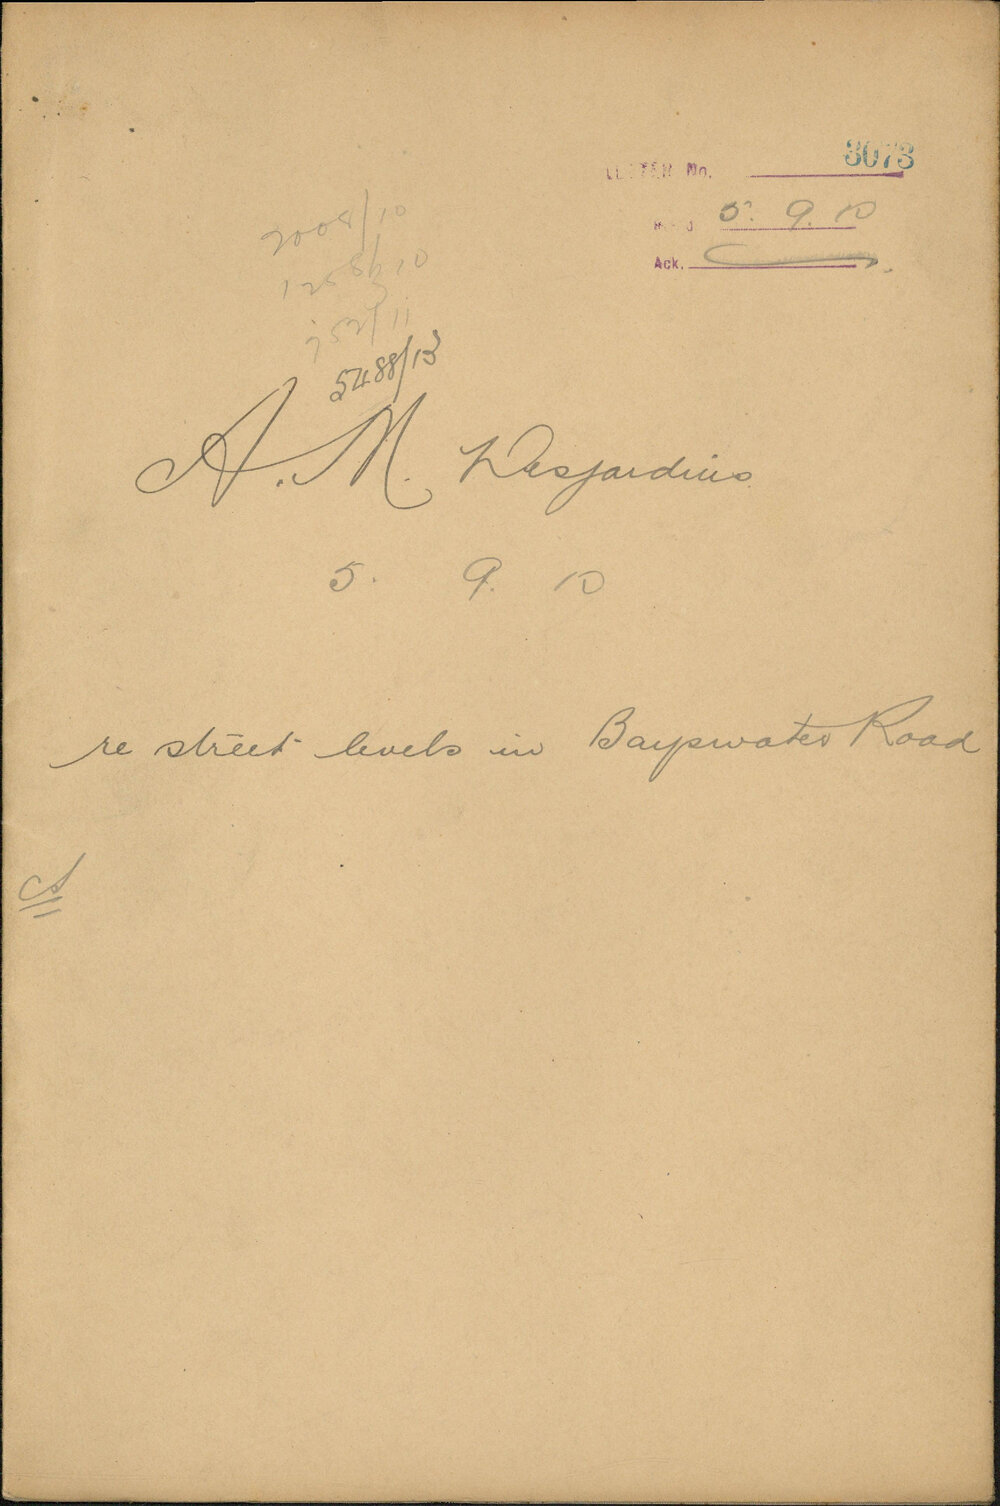 LETTER No. 3073
Rec'd 5. 9. 10
Ack.
2008/10
5488/13
A. M. Desjardins
5. 9. 10
re street levels in Bayswater Road